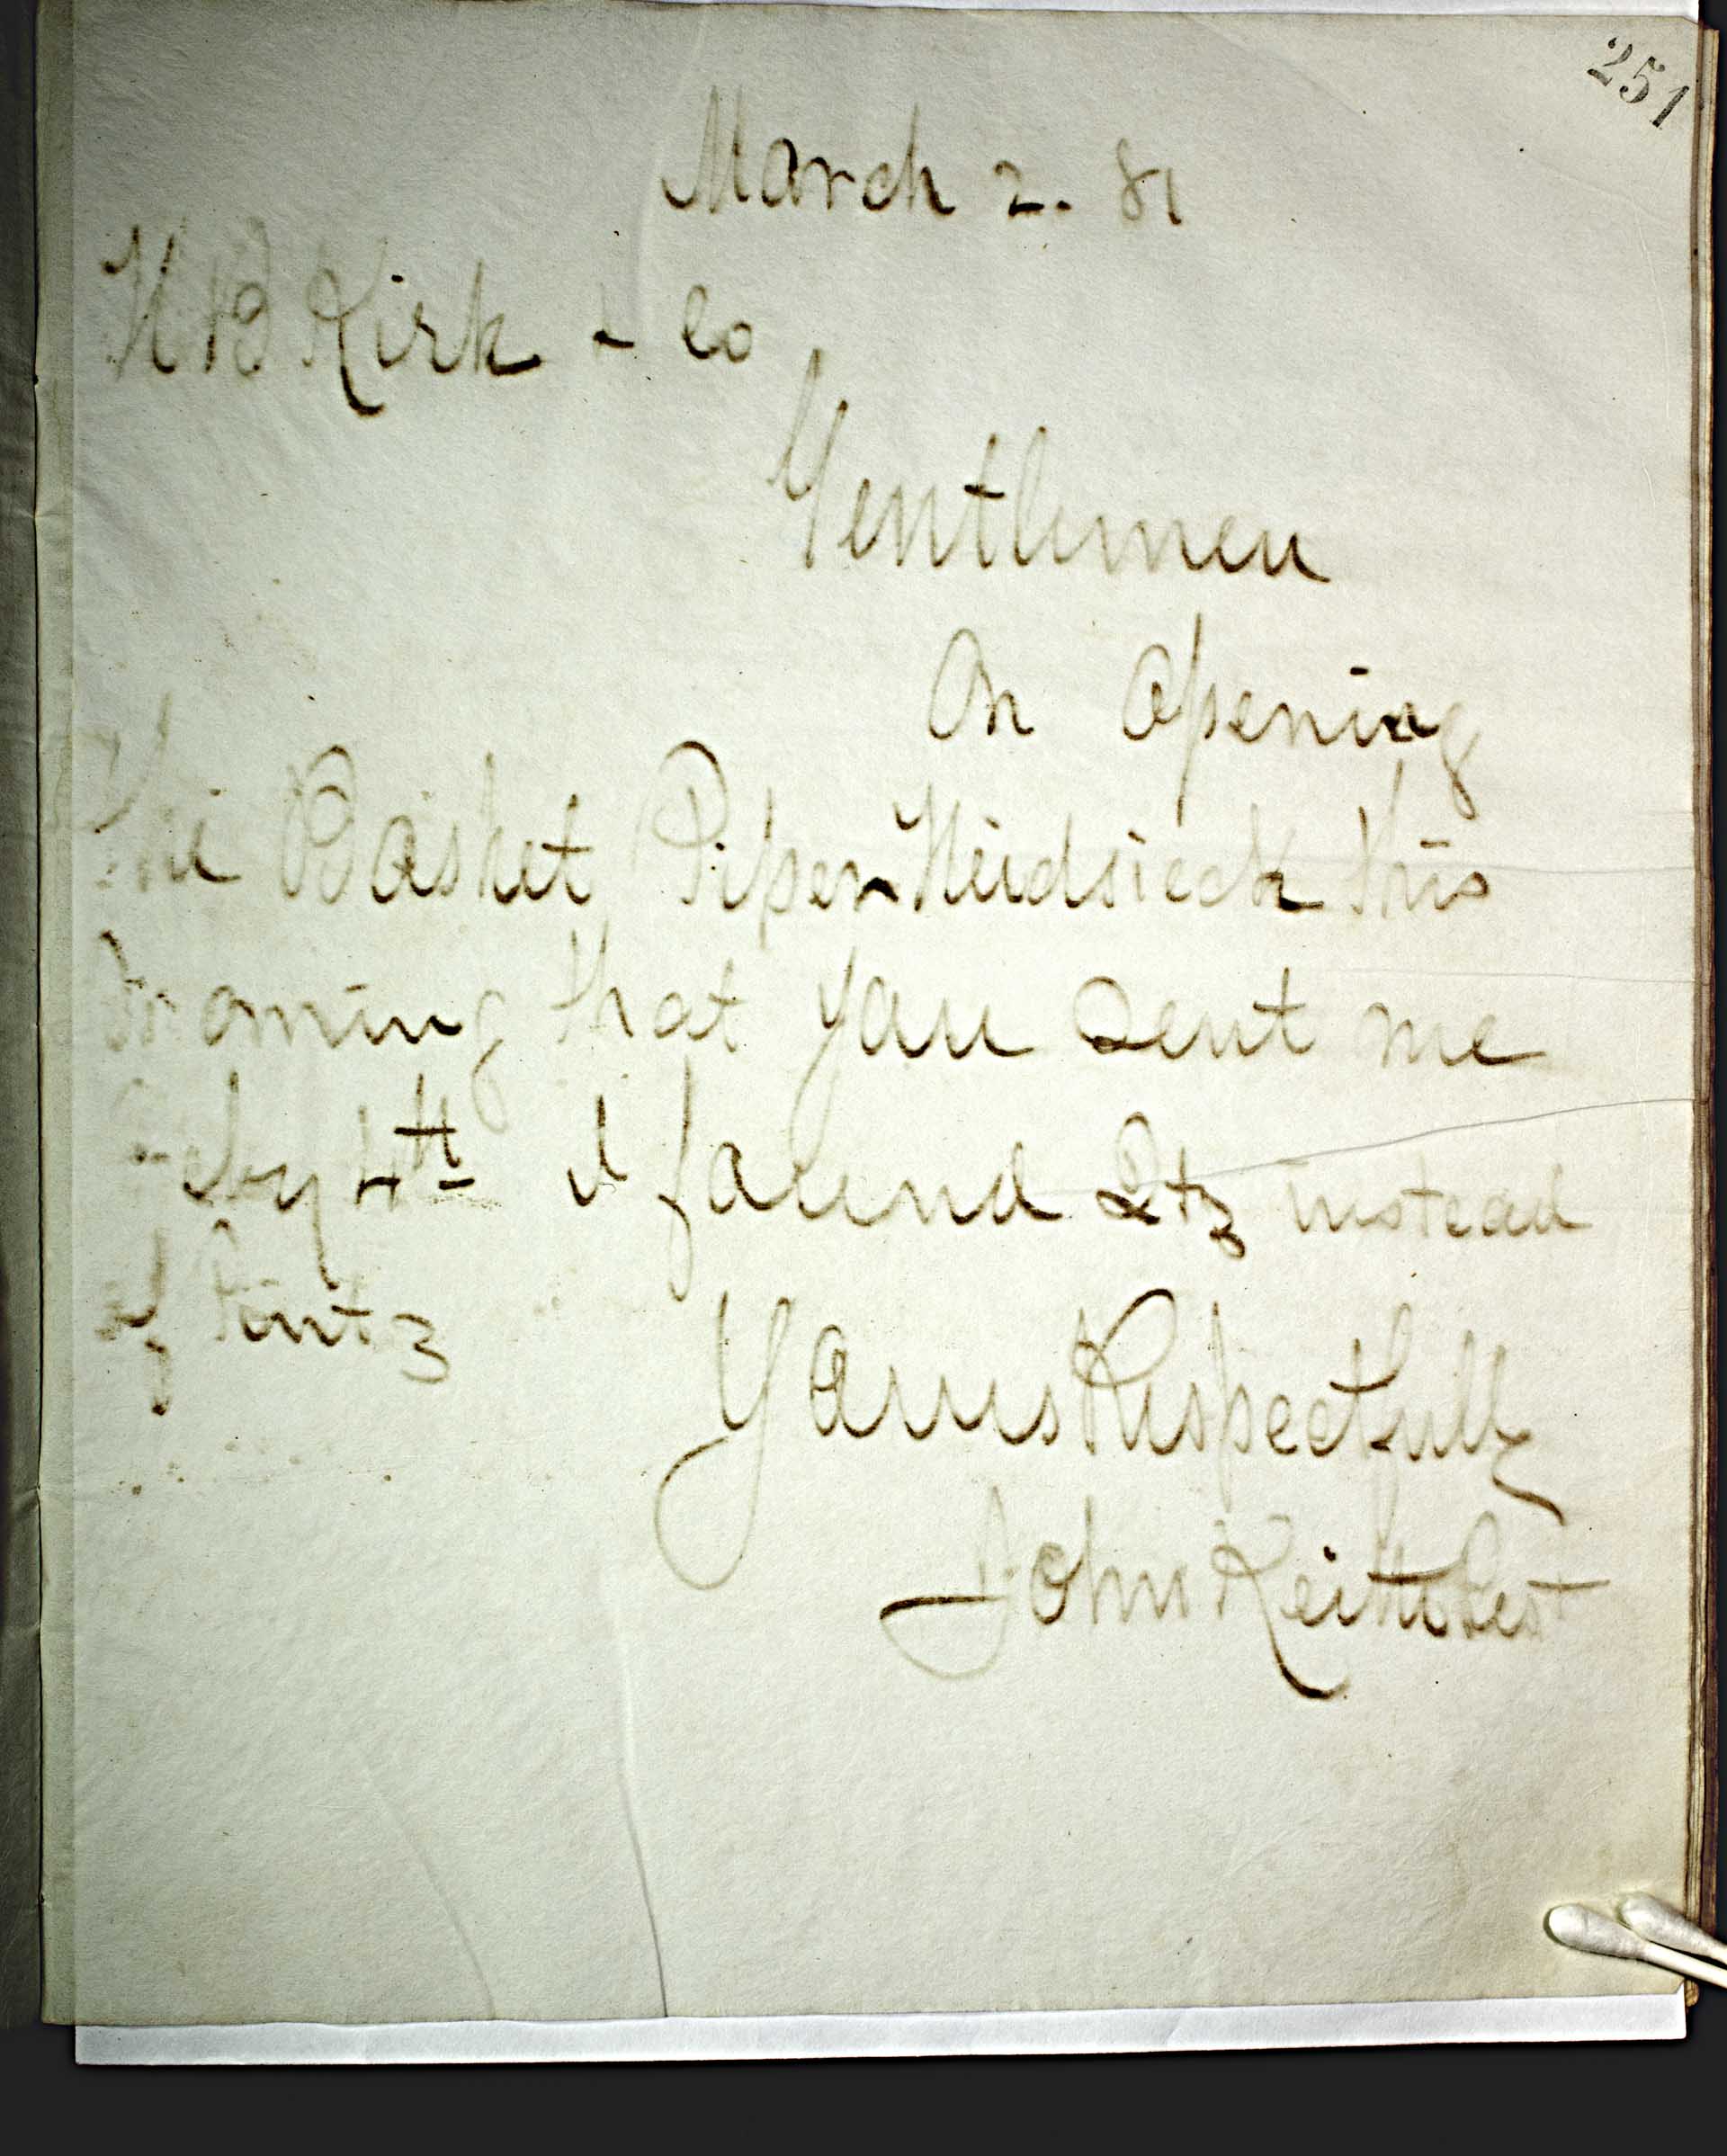 251
March 2. 81
H B Kirk & Co
Gentlemen
On Opening
The Basket Piper Heidsieck this
morning that you sent me
Feby 4th I found Qtz instead
of Pintz
Yours Respectfully
John Keith